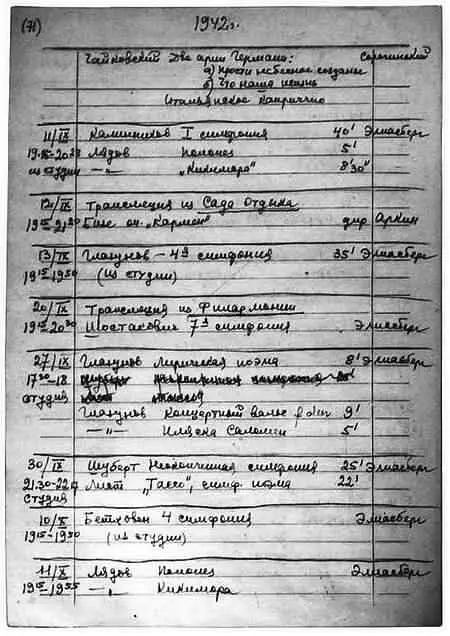 (71) 1942г.
Чайковский Две арии Германа: Сорочинский
а) Прости небесное созданье
б) Что наша жизнь
Итальянское Каприччио
11/IX Калинников I симфония 40' Элиасберг
19.15-20.20 Лядов Полонез 5'
из студии —"— „Кикимора" 8'30"
12/IX Трансляция из Сада Отдыха
19 15-21 30 Бизе оп. „Кармен" дир Аркин
13/IX Глазунов – 4я симфония 35' Элиасберг
19 15-19 50 (из студии)
20/IX Трансляция из Филармонии
19 15-20 30 Шостакович 7я симфония Элиасберг
27/IX Глазунов Лирическая поэма 8' Элиасберг
17 30-18
студия
Глазунов Концертный вальс f dur 9'
—"— Пляска Саломеи 5'
30/IX Шуберт Неоконченная симфония 25' Элиасберг
21.30-22 Лист „Тассо", симф. поэма 22'
студия
10/X Бетховен 4 симфония Элиасберг
19 15-19 50 (из студии)
11/X Лядов Полонез Элиасберг
19 15-19 35 —"— Кикимора